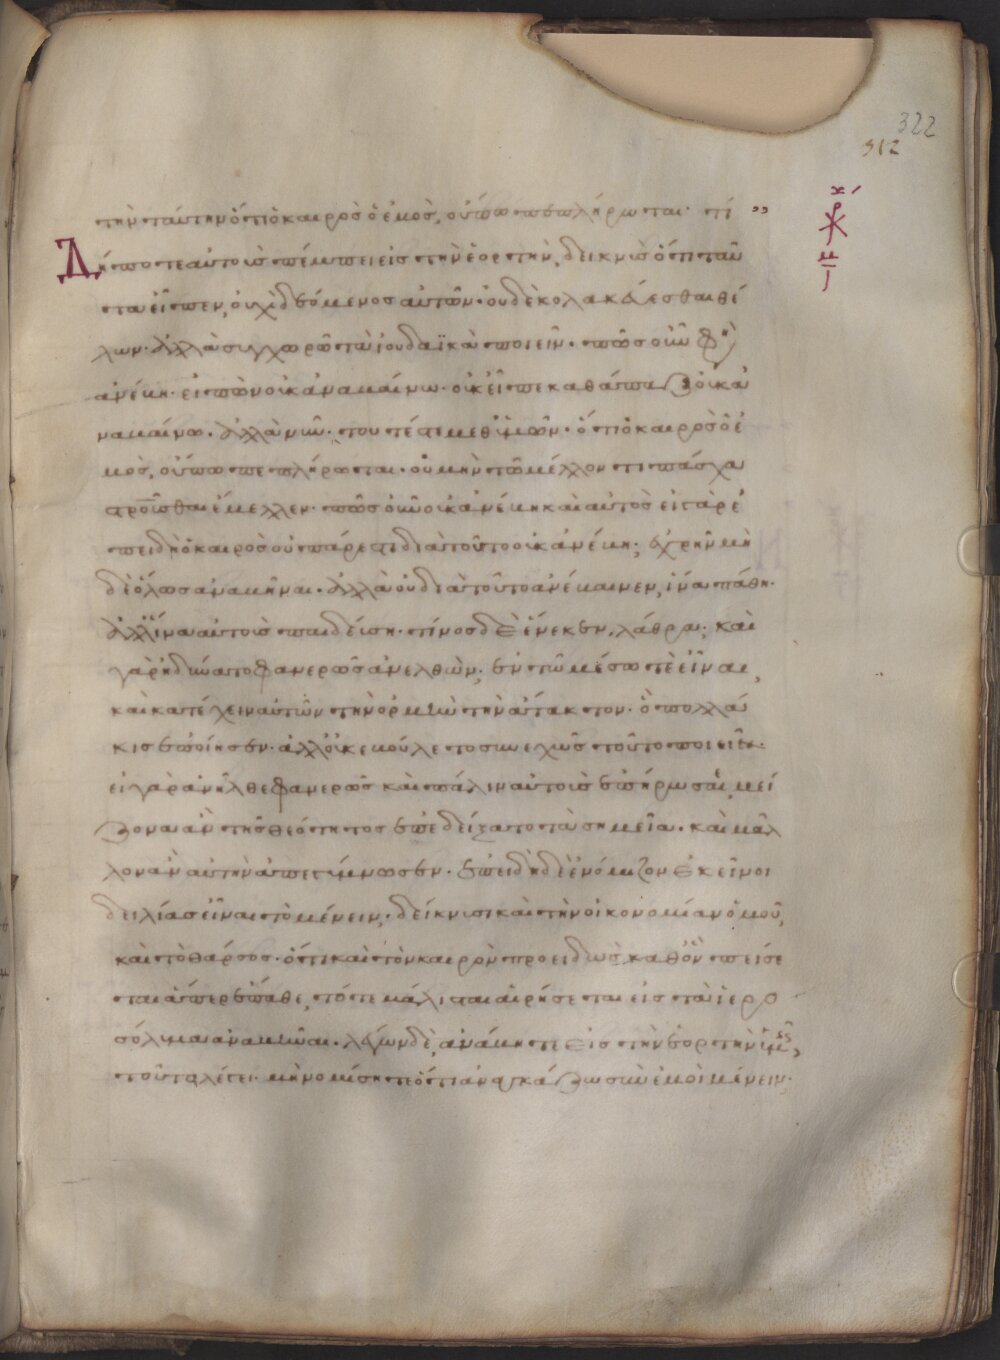 322
312
την ταύτην ὅτι ὁ καιρὸς ὁ ἐμὸς, οὔπω πεπλήρωται· τί
Δήποτε αὐτοὺς πέμπει εἰς τὴν ἑορτὴν, δεικνὺς ὅτι ταῦ
τα εἶπεν, οὐχὶ δεόμενος αὐτῶν· οὐδὲ κολακεύεσθαι θέ
λων· ἀλλὰ συγχωρῶν τὰ ἰουδαϊκὰ ποιεῖν· πῶς οὖν φησὶ
ἀνέβη· εἰπὼν οὐκ ἀναβαίνω· οὐκ εἶπε καθάπαξ οὐκ ἀ
ναβαίνω· ἀλλὰ νῦν· τουτέστι μεθ' ὑμῶν· ὅτι ὁ καιρὸς ὁ ἐ
μὸς, οὔπω πεπλήρωται· οὐ μὴν τῶ μέλλοντι πάσχα
σταυροῦσθαι ἔμελλεν· πῶς οὖν οὐκ ἀνέβη καὶ αὐτὸς εἰ γὰρ ἐ
πειδὴ ὁ καιρὸς οὐ πάρεστι διὰ τοῦτο οὐκ ἀνέβη; ἐχρῆν μη
δὲ ὅλως ἀναβῆναι· ἀλλὰ οὐ διὰ τοῦτο ἀνέβαινεν, ἵνα πάθη·
ἀλλ' ἵνα αὐτοὺς παιδεύση· τίνος δὲ ἕνεκεν, λάθρα; καὶ
γὰρ ἠδύνατο φανερῶς ἀνελθὼν; ἐν τῶ μέσω τὲ εἶναι,
καὶ κατέχειν αὐτῶν τὴν ὁρμὴν τὴν ἄτακτον· ὃ πολλά
κις ἐποίησεν· ἀλλ' οὐκ ἐβούλετο συνεχῶς τοῦτο ποιεῖν·
εἰ γὰρ ἀνῆλθε φανερῶς καὶ πάλιν αὐτοὺς ἐπήρωσε, μεί
ζονα ἂν τῆς θεότητος ἐπεδείξατο τὰ σημεῖα· καὶ μᾶλ
λον ἂν αὐτὴν ἀπεγύμνωσεν· ἐπειδὴ δὲ ἐνόμιζον ἐκεῖνοι
δειλίας εἶναι τὸ μένειν· δείκνυσι καὶ τὴν οἰκονομίαν ὁμοῦ,
καὶ τὸ θάρσος· ὅτι καὶ τὸν καιρὸν προειδὼς καθ' ὃν πείσε
ται ἅπερ ἔπαθε, τότε μάλιστα αἱρήσεται εἰς τὰ ἱερο
σόλυμα ἀναβῆναι· λέγων δὲ, ἀνάβητε εἰς τὴν ἑορτὴν ὑμεῖς,
τοῦτο λέγει· μὴ νομίσητε ὅτι ἀναγκάζω σὺν ἐμοὶ μένειν·